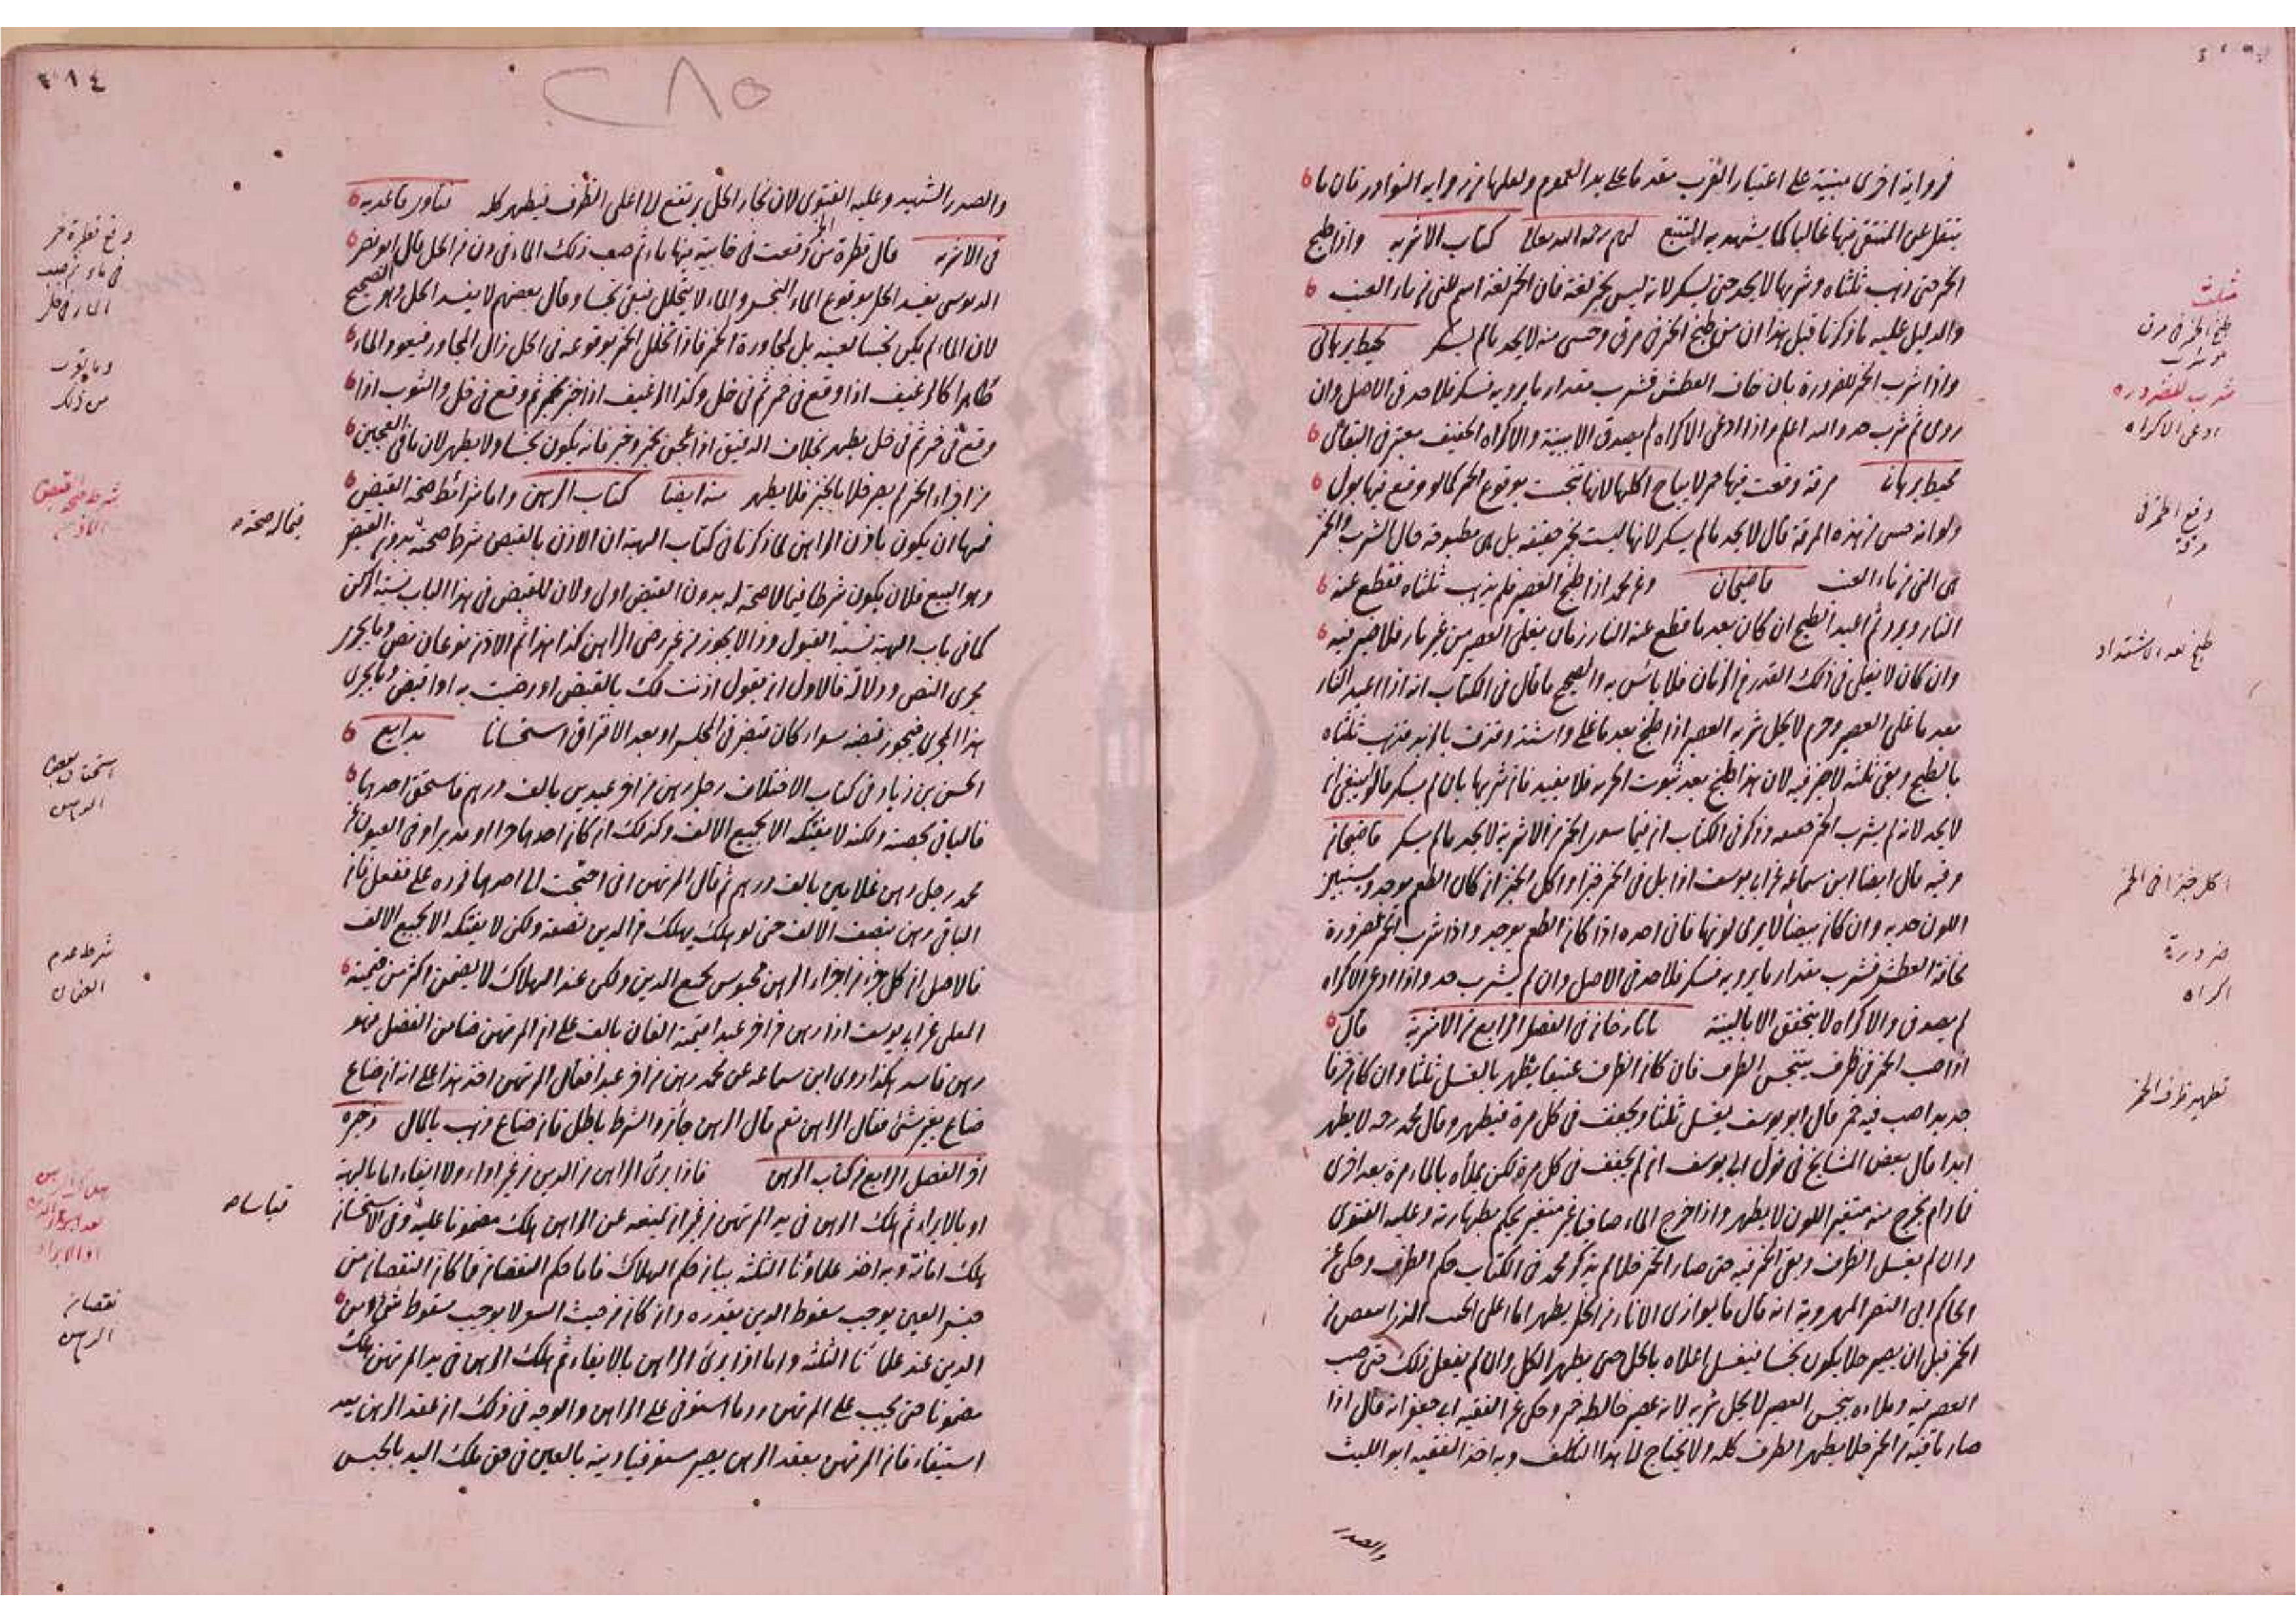 في رواية اخرى مبنية على اعتبار القرب مقدما على يد العموم ولعلها من رواية النوادر فان ما
ينقل عن المنتقى فيها غالبا كما يشهد به التتبع رحمه الله تعالى كتاب الاشربة واذا طبخ
الخمر حتى ذهب ثلثاه وشربها لا يحد حتى يسكر لانه ليس بخمر لغة فان الخمر لغة اسم للنى من ماء العنب
والدليل عليه ما ذكرنا قبل هذا ان من طبخ الخمر في مرق وحسى منه لا يحد ما لم يسكر محيط برهاني
واذا شرب الخمر للضرورة بان خاف العطش فشرب مقدار ما يرويه فسكر فلا حد في الاصل وان
روى ثم شرب حد والله اعلم واذا ادعى الاكراه لم يصدق الا ببينة والاكراه الخفيف معتبر في
محيط برهانى مرقة وقعت فيها خمر لا يباح اكلها لانها تنجست بوقوع الخمر كما لو وقع فيها بول
ولو انه حسى من هذه المرقة قال لا يحد ما لم يسكر لانها ليست بخمر حقيقة بل هى مطبوخة حال الشرب والخمر
هى النى من ماء العنب قاضيخان وعن محمد اذا طبخ العصير فلم يذهب ثلثاه فقطع عنه
النار وبرد ثم اعيد الطبخ ان كان بعد ما قطع عنه النار زمان يغلى العصير من غير نار فلا خير فيه
وان كان لا يغلى في ذلك القدر من الزمان فلا بأس به والصحيح ما قال في الكتاب انه اذا اعيد النار
بعد ما غلى العصير وحرم لا يحل شربه العصير اذا طبخ بعد ما غلى واشتد وقذف بالزبد فذهب ثلثاه
بالطبخ وبقى ثلثه لا خير فيه لان هذا طبخ بعد ثبوت الحرمة فلا يفيد فان شربها بان لم يسكر قالوا ينبغي ان
لا يحد لانه لم يشرب الخمر وذكر في الكتاب ان فيما سوى الخمر من الاشربة لا يحد ما لم يسكر قاضيخان
وفيه قال ايضا ابن سماعة عن ابى يوسف اذا بل في الخمر خبزا واكل الخبز ان كان الطعم يوجد ويستبين
اللون حد به وان كان بيضا لا يرى لونها فانى احده اذا كان الطعم يوجد واذا شرب الخمر لضرورة
مخافة العطش فشرب مقدار ما يرويه فسكر فلا حد في الاصل وان لم يشرب حد واذا ادعى الاكراه
لم يصدق والاكراه لا يتحقق الا بالبينة تاتارخانى في الفصل الرابع من الاشربة قال
اذا صب الخمر في ظرف يتنجس الظرف فان كان الظرف عتيقا يطهر بالغسل ثلثا وان كان خزفا
جديدا صب فيه خمر قال ابو يوسف يغسل ثلثا ويجفف في كل مرة فيطهر وقال محمد رحه لا يطهر
ابدا قال بعض المشايخ في قول ابى يوسف ان لم يجفف في كل مرة لكن يملأه بالماء مرة بعد اخرى
فادام يخرج منه متغير اللون لا يطهر واذا خرج الماء صافيا غير متغير يحكم بطهارته وعليه الفتوى
وان لم يغسل الظرف وبقى الخمر فيه حتى صار الخمر خلا لم يذكر محمد في الكتاب حكم الظرف وحكى عن
الحاكم ابى النصر المهروية انه قال ما يوازى الاناء من الخل يطهر اما اعلى الحب الذى
الخمر قبل ان يصير خلا يكون نجسا فيغسل اعلاه بالخل حتى يطهر الكل وان لم يفعل ذلك حتى صب
العصير فيه وملاءه ينجس العصير لا يحل شربه لانه عصير خالطه خمر وحكى عن الفقيه ابى جعفر انه قال اذا
صار ما فيه من الخمر خلا يطهر الظرف كله ولا يحتاج الى هذا التكلف وبه اخذ الفقيه ابو الليث
والصدر
مثلث
طبخ الخمر في مرق
شرب للضرورة
ادعى الاكراه
وقع الخمر في
مرقة
طبخ بعد الاشتداد
اكل خبزا في الخمر
ضرورة
اكراه
تطهير ظرف الخمر
٣١٤
٢٨٥
والصدر الشهيد وعليه الفتوى لان بخار الخل يرتفع الى اعلى الظرف فيطهر كله فتاوى قاعديه
في الاشربة قال قطرة من الخمر وقعت في خابية فيها ماء ثم صب ذلك الماء في دن من الخل قال ابو نصر
الدبوسى يفسد الخل بوقوع الماء النجس والماء لا يتخلل فبقى نجسا وقال بعضهم لا يفسد الخل وهو الصحيح
لان الماء لم يكن نجسا بعينه بل لمجاورة الخمر فاذا تخلل الخمر بوقوعه في الخل زال المجاور فيعود الماء
طاهرا كالرغيف اذا وقع في خمر ثم في خل وكذا الرغيف اذا خبز بخمر ثم وقع في خل والثوب اذا
وقع في خمر ثم في خل يطهر بخلاف الدقيق اذا عجن بخمر وخبز فانه يكون نجسا ولا يطهر لان ما في العجين
من اجزاء الخمر لم يصر خلا بالخبز فلا يطهر منه ايضا كتاب الرهن واما شرائط صحة القبض
فمنها ان يكون باذن الراهن لما ذكرنا في كتاب الهبة ان الاذن بالقبض شرط صحته بدون القبض
وهو البيع فلان يكون شرطا فيما لا صحة له بدون القبض اولى ولان للقبض في هذا الباب شبه الركن
كما في باب الهبة شبه القبول وذا لا يجوز من غير رضى الراهن كذا هذا ثم الاذن نوعان نص وما يجرى
مجرى النص ودلالة فالاول ان يقول اذنت لك بالقبض او رضيت به او اقبض وما يجرى
هذا المجرى فيجوز قبضه سواء كان قبض في المجلس او بعد الافتراق استحسانا بدايع
الحسن بن زياد في كتاب الاختلاف رجل رهن من اخر عبدين بالف درهم فاستحق احدهما
فالباقى بحصته ولكنه لا يفتكه الا بجميع الالف وكذلك ان كان احدهما حرا او مدبرا وفي العيون عن
محمد رجل رهن غلامين بالف درهم ثم قال المرتهن انى احتجت الى احدهما فرده على ففعل فان
الباقى رهن بنصف الالف حتى لو هلك يهلك من الدين نصفه ولكن لا يفتكه الا بجميع الالف
فالاصل ان كل جزء من اجزاء الرهن محبوس بجميع الدين ولكن عند الهلاك لا يضمن اكثر من قيمته
المعلى عن ابى يوسف اذا رهن من اخر عبدا قيمته الفان بالف على ان المرتهن ضامن الفضل فهو
رهن فاسد هكذا روى ابن سماعة عن محمد رهن من اخر عبدا فقال المرتهن اخذ هذا على انه ان ضاع
ضاع بغير شئ فقال الراهن نعم قال الرهن جائز والشرط باطل فان ضاع ذهب بالمال وخيره
اخر الفصل الرابع من كتاب الرهن فاذا برئ الراهن من الدين من غير اداء ولا ايفاء اما بالهبة
او بالابراء ثم هلك الرهن في يد المرتهن من غير ان يمنعه عن الراهن هلك مضمونا عليه وفي الاستحسان
هلك امانة وبه اخذ علماؤنا الثلثة بيان حكم الهلاك فاما حكم النقصان فاكان النقصان من
حيث العين يوجب سقوط الدين بقدره وان كان من حيث السعر لا يوجب سقوط شئ من
الدين عند علمائنا الثلثة واما اذا برئ الراهن بالايفاء ثم هلك الرهن في يد المرتهن هلك
مضمونا حتى يجب على المرتهن رد ما استوفى على الراهن والوجه في ذلك ان عقد الرهن يعد
استيفاء فان المرتهن بعقد الرهن يصير مستوفيا دينه بالعين في حق ملك اليد بالحبس
وقع قطرة خمر
في ماء ثم صب
الماء في خل
وما يقرب
من ذلك
شرط صحة قبض
فيما له صحة
استحقاق بعض
الرهن
شرط عدم
الضمان
قياسا
نقصان
الرهن